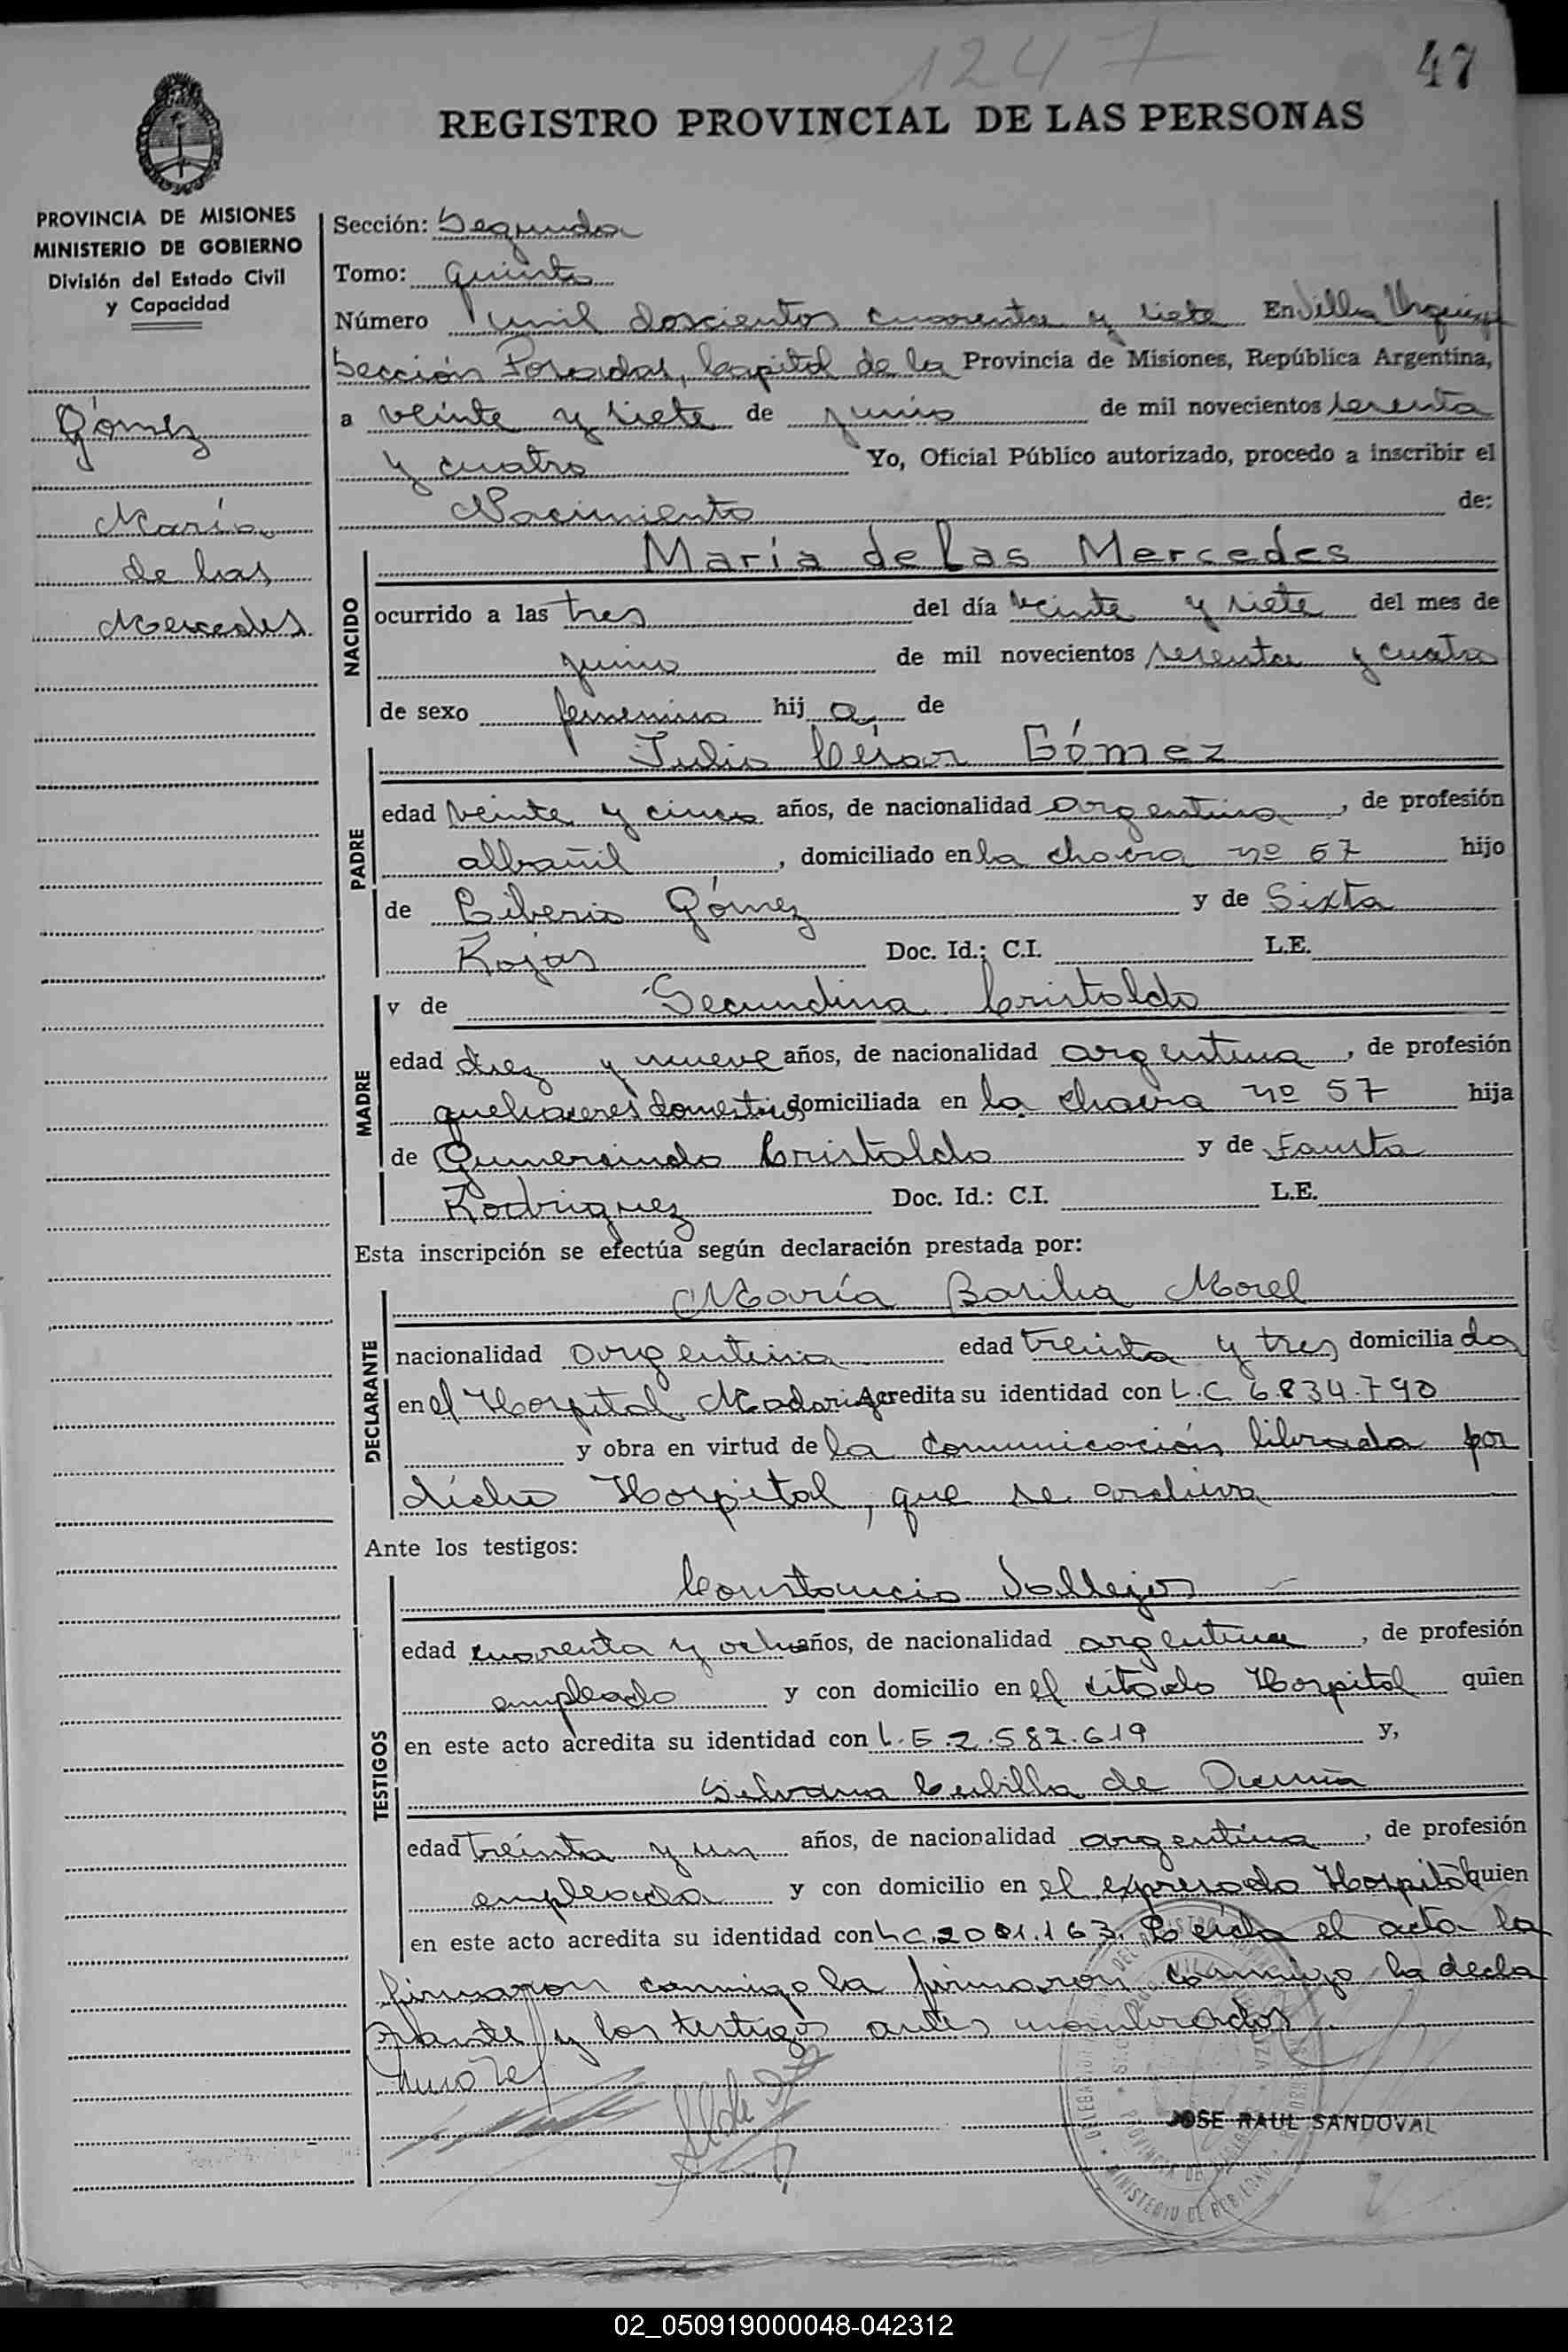 1247
47
REGISTRO PROVINCIAL DE LAS PERSONAS
PROVINCIA DE MISIONES
MINISTERIO DE GOBIERNO
División del Estado Civil
y Capacidad
Gómez
María
de las
Mercedes
Sección: Segunda
Tomo: quinto
Número mil doscientos cuarenta y siete En Villa Urquiza
Sección Posadas, Capital de la Provincia de Misiones, República Argentina,
a veinte y siete de junio de mil novecientos sesenta
y cuatro Yo, Oficial Público autorizado, procedo a inscribir el
Nacimiento de:
NACIDO
María de las Mercedes
ocurrido a las tres del día veinte y siete del mes de
junio de mil novecientos sesenta y cuatro
de sexo femenino hij a de
PADRE
Julio César Gómez
edad veinte y cinco años, de nacionalidad argentina, de profesión
albañil, domiciliado en la chacra nº 57 hijo
de Liberio Gómez y de Sixta
Rojas Doc. Id.: C.I. L.E.
MADRE
y de Secundina Cristaldo
edad diez y nueve años, de nacionalidad argentina, de profesión
quehaceres domésticos domiciliada en la chacra nº 57 hija
de Gumercindo Cristaldo y de Fausta
Rodriguez Doc. Id.: C.I. L.E.
Esta inscripción se efectúa según declaración prestada por:
DECLARANTE
María Basilia Morel
nacionalidad argentina edad treinta y tres domicilia da
en el Hospital Madariaga Acredita su identidad con L.C 6.834.790
y obra en virtud de la comunicación librada por
dicho Hospital, que se archiva
Ante los testigos:
TESTIGOS
Constancio Vallejos
edad cuarenta y ocho años, de nacionalidad argentina, de profesión
empleado y con domicilio en el citado Hospital quien
en este acto acredita su identidad con L.E.2.582.619 y,
Silvana Cubilla de
edad treinta y un años, de nacionalidad argentina, de profesión
empleada y con domicilio en el expresado Hospital quien
en este acto acredita su identidad con L.C.2001.163. Leída el acta la
firmaron conmigo la firmaron conmigo la decla
rante y los testigos antes nombrados.
JOSE RAUL SANDOVAL
02_050919000048-042312